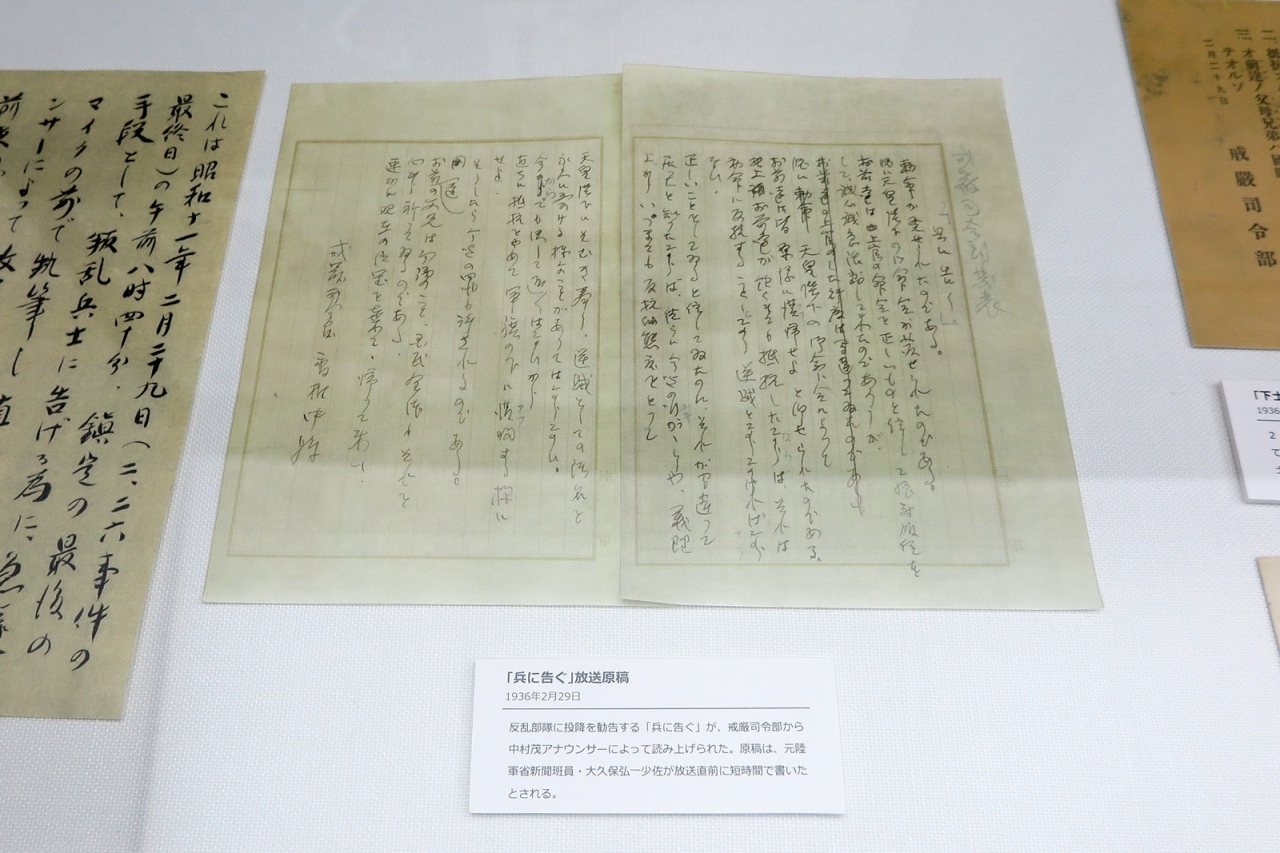 二、
三、オ前達ノ父母兄弟ハ
テオルゾ
二月二十九日
戒嚴司令部
戒嚴司令部発表
「兵に告ぐ」
勅命が発せられたのである。
既に天皇陛下の御命令が発せられたのである。
お前達は上官の命令を正しいものと信じて絶対服従を
して、誠心誠意活動して来たのであらうが
お前達の上官のした行為は間違ってゐたのである
既に勅命 天皇陛下の御命令によって
お前達は皆原隊に復帰せよと仰せられたのである。
此上お前達が飽くまでも抵抗したならば、それは
勅命に反抗することとなり逆賊とならなければなら
ない。
正しいことをしてゐると信じてゐたのに、それが間違って
居たと知ったならば、徒らに今迄の行がゝりや、義理
上からいつまでも反抗的態度をとって
天皇陛下にそむき奉り、逆賊としての汚名を
永久に受ける様なことがあってはならない。
今からでも決して遅くはないから
直ちに抵抗をやめて軍旗の下に復帰する様に
せよ
そうしたら今迄の罪も許されるのである。
お前達の父兄は勿論のこと、国民全体もそれを
心から祈ってゐるのである。
速かに現在の位置を棄てゝ帰って来い
戒嚴司令官 香椎中将
これは昭和十一年二月二十九日(二、二六事件の
最終日)の午前八時四十分、鎮定の最後の
手段として、叛乱兵士に告げる為に、急
マイクの前で執筆し
ンサーによって放
前
「兵に告ぐ」放送原稿
1936年2月29日
反乱部隊に投降を勧告する「兵に告ぐ」が、戒厳司令部から
中村茂アナウンサーによって読み上げられた。原稿は、元陸
軍省新聞班員・大久保弘一少佐が放送直前に短時間で書いた
とされる。
「下士
1936
2
て